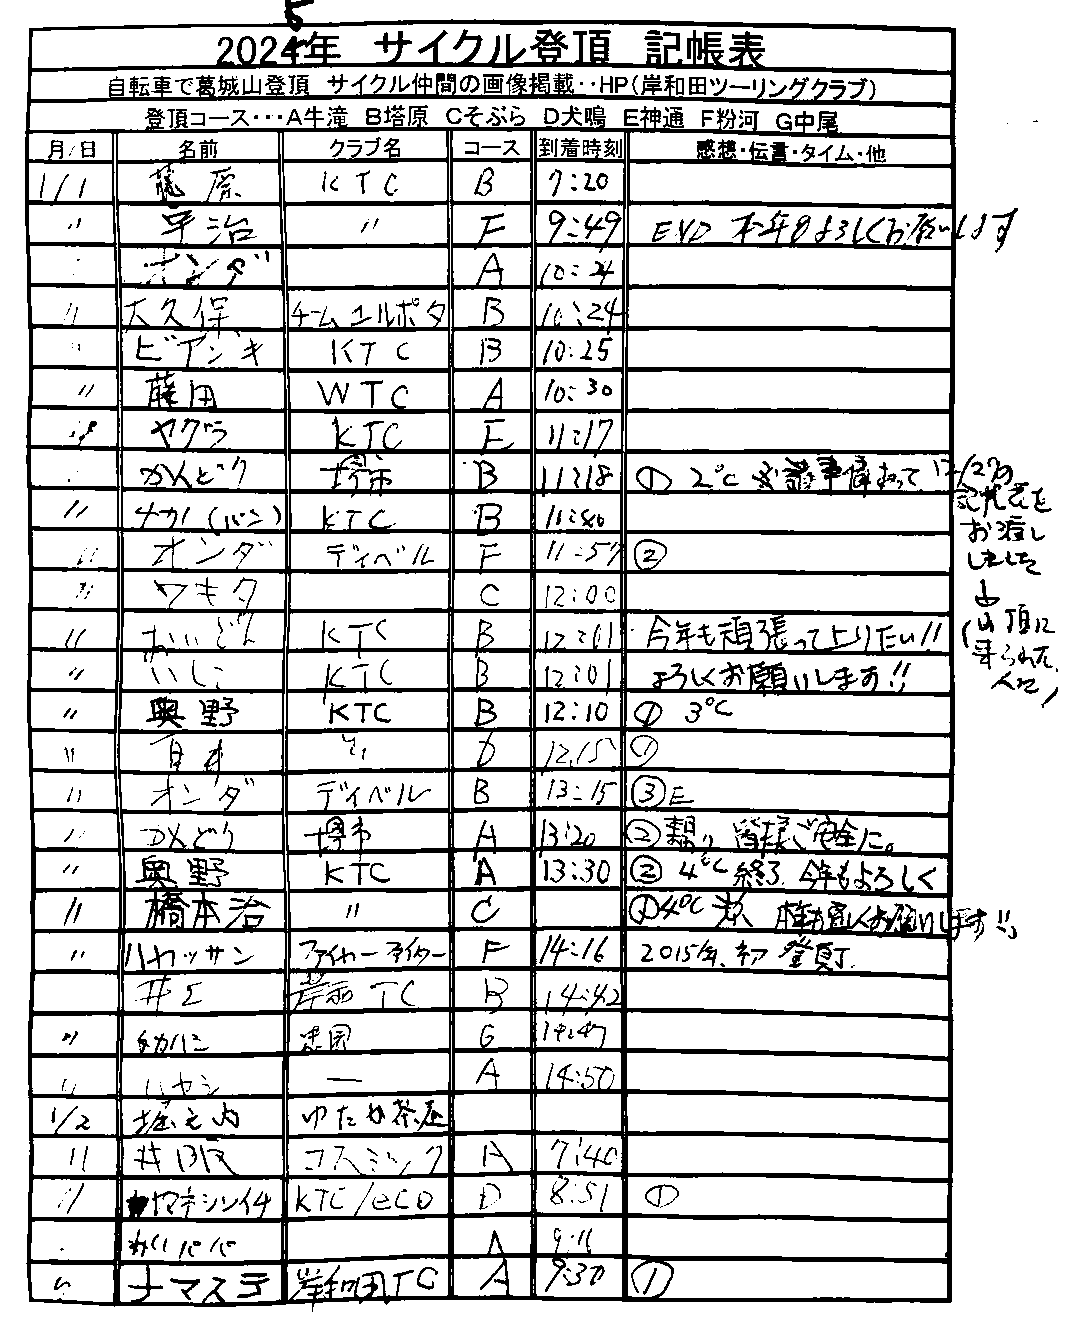 5
2024年 サイクル登頂 記帳表
自転車で葛城山登頂 サイクル仲間の画像掲載‥HP(岸和田ツーリングクラブ)
登頂コース･･･A牛滝 B塔原 Cそぶら D犬鳴 E神通 F粉河 G中尾
月/日 名前 クラブ名 コース 到着時刻 感想・伝言・タイム・他
1/1 藤原 KTC B 7:20
〃 宇治 〃 F 9:49 END 本年もよろしくお願いします
ホンダ A 10:24
〃 大久保 チームエルポタ B 10:24
〃 ビアンキ KTC B 10:25
〃 藤田 WTC A 10:30
〃 ヤグラ KTC E 11:17
かんどり 堺市 B 11:18 ① 2℃ 12/27の
記帳表を
お渡し
しました
〃 ナカノ(バン) KTC B 11:40
〃 オンダ ディベル F 11:57 ②
〃 ワキタ C 12:00
〃 おいどん KTC B 12:01 今年も頑張って上りたい!!
(山頂に
来られた
人に)
〃 いしこ KTC B 12:01 よろしくお願いします!!
〃 奥野 KTC B 12:10 ① 3℃
〃 D 12,15 ①
〃 オンダ ディベル B 13:15 ③E
〃 かんどり 堺市 A 13:20 ② 曇り 皆様ご安全に。
〃 奥野 KTC A 13:30 ② 4℃ 終了 今年もよろしく
〃 橋本治 〃 C ①4℃
〃 ハヤッサン ファイヤーファイター F 14:16 2015年、初登頂.
井上 岸和田TC B 14:42
〃 G 14:47
〃 ハヤシ ー A 14:50
1/2 堀之内 ゆたか茶屋
〃 井阪 コスミック A 7:40
〃 ヤマネシンイチ KTC/eco D 8:51 ①
パパ A 9:11
〃 ナマステ 岸和田TC A 9:30 ①